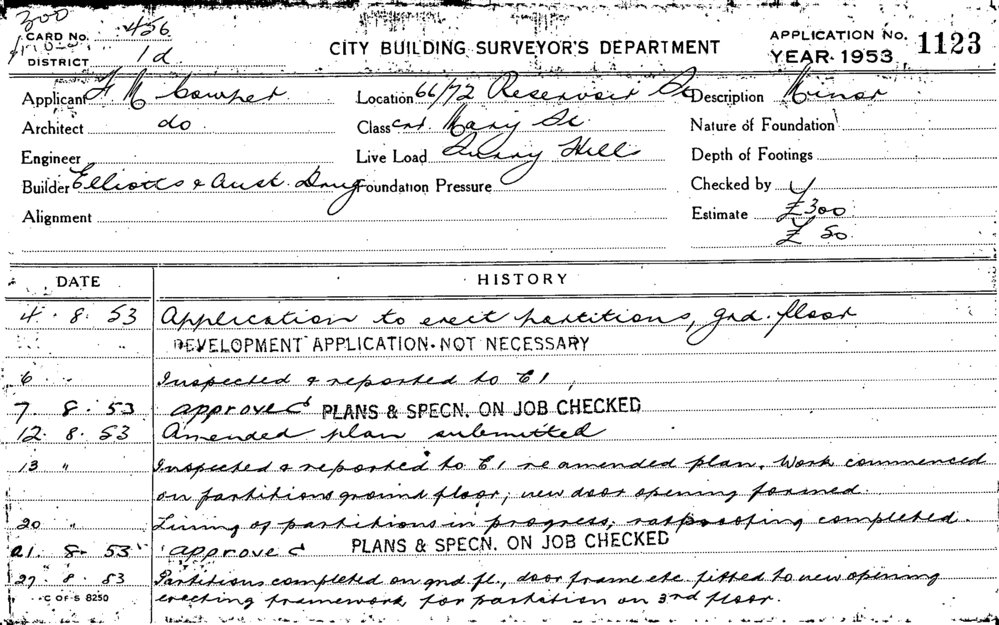 300
CARD No. 456
DISTRICT 1d
CITY BUILDING SURVEYOR'S DEPARTMENT
APPLICATION No. 1123
YEAR 1953
Applicant F M Cowper Location 66/72 Reservoir St Description Minor
Architect do Class cnr. Mary St. Nature of Foundation
Engineer Live Load Surry Hills Depth of Footings
Builder Elliotts & Aust. Drug Foundation Pressure Checked by
Alignment Estimate £300
£ 50
DATE HISTORY
4. 8. 53 Application to erect partitions, gnd. floor
DEVELOPMENT APPLICATION NOT NECESSARY
6 " Inspected & reported to E1,
7. 8. 53 approved PLANS & SPECN. ON JOB CHECKED
12. 8. 53 Amended plan submitted
13 " Inspected & reported to E1 re amended plan. Work commenced
on partitions ground floor; new door opening formed.
20 " Lining of partitions in progress; ratproofing completed.
21. 8. 53 approved PLANS & SPECN. ON JOB CHECKED
27. 8. 53 Partitions completed on gnd fl., door frame etc. fitted to new opening
C OF S 8250 erecting framework for partition on 3rd floor.